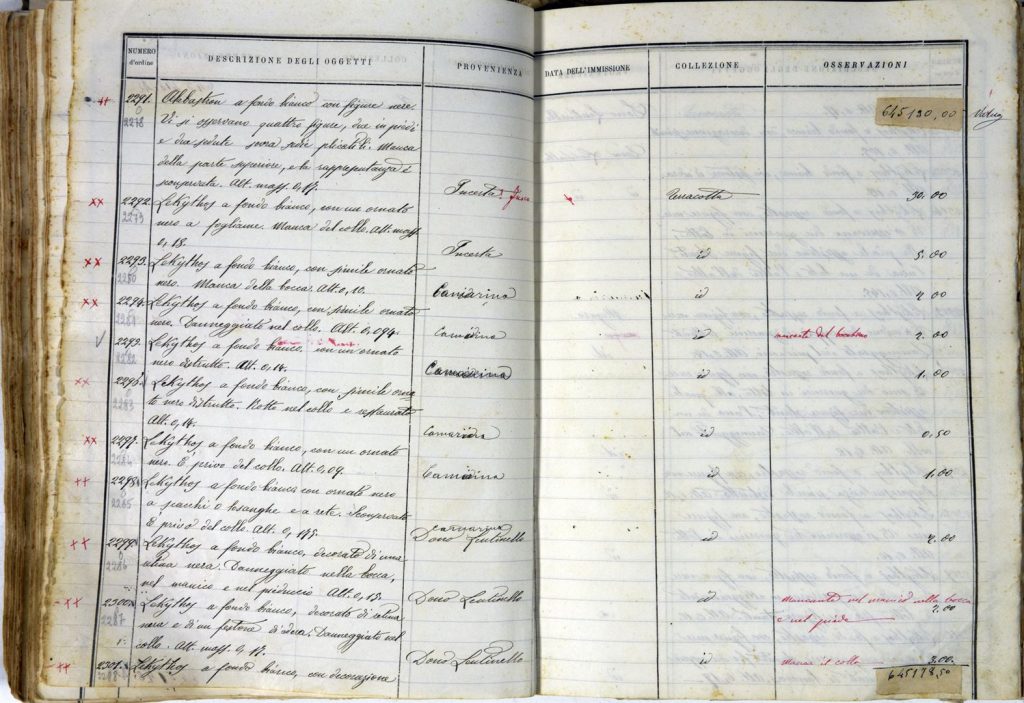 NUMERO d'ordine DESCRIZIONE DEGLI OGGETTI PROVENIENZA DATA DELL'IMMISSIONE COLLEZIONE OSSERVAZIONI
645190,00
2291. Alabastron a fondo bianco con figure nere.
2278 Vi si osservano quattro figure, due in piedi
e due sedute sopra
della parte superiore, e la rappresentanza è
sconservata. Alt. mass. 0,17. Incerta Terracotta 30.00
xx 2292. Lekythos a fondo bianco, con un ornato
2279 nero a fogliame. Manca del collo. Alt. mass
0,15. Incerta id 5.00
xx 2293. Lekythos a fondo bianco, con simile ornato
2280 nero. Manca della bocca. Alt. 0,10. Camarina id 2.00
xx 2294. Lekythos a fondo bianco, con simile ornato
2281 nero. Danneggiato nel collo. Alt. 0,094. Camarina id 2.00
2295. Lekythos a fondo bianco, con un ornato
2282 nero distrutto. Alt. 0,14. Camarina id 1.00
xx 2296. Lekythos a fondo bianco, con simile orna
2283 to nero distrutto. Rotto nel collo e restaurato
Alt. 0,14. Camarina id 0,50
xx 2297. Lekythos a fondo bianco, con un ornato
2284 nero. È privo del collo. Alt. 0,09. Camarina id 1.00
++ 2298. Lekythos a fondo bianco con ornato nero
2285 a scacchi o losanghe e a rete. Sconservato
È privo del collo. Alt. 0,175. Camarina
Dono Lentinello id 2.00
++ 2299. Lekythos a fondo bianco, decorato di una
2286 nera. Danneggiato nella bocca,
nel manico e nel Alt. 0,15. Dono Lentinello id 2.00
++ 2300. Lekythos a fondo bianco, decorato di
2287 nera e di un festone di edera. Danneggiato nel
collo. Alt. mass. 0,17. Dono Lentinello id Manca il collo 3.00
++ 2301. Lekythos a fondo bianco, con decorazione
645178,50